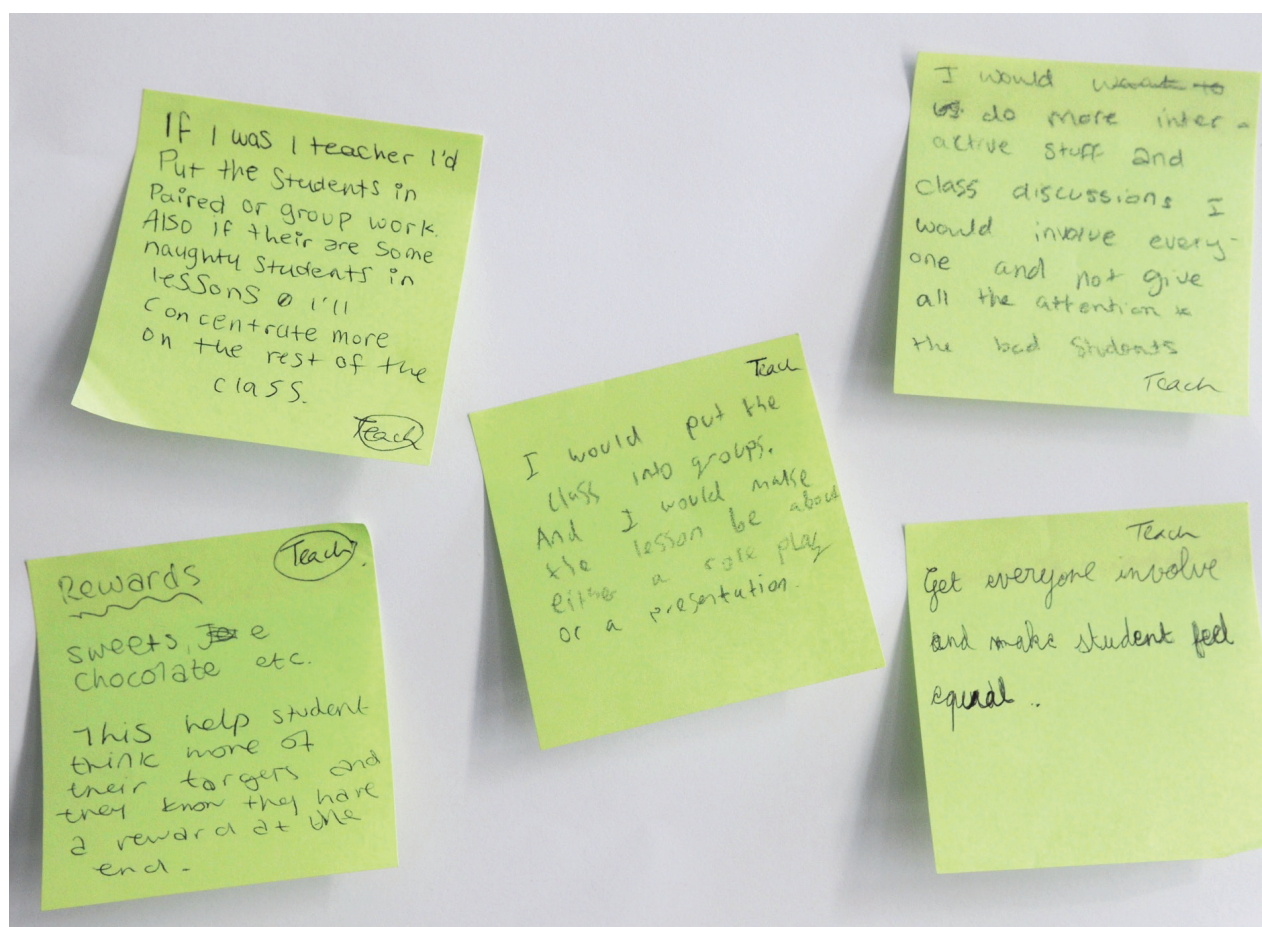 If I was 1 teacher I'd
Put the Students in
Paired or group work.
Also if their are some
naughty students in
lessons I'll
concentrate more
on the rest of the
class.
Teach
I would want to
do more inter-
active stuff and
class discussions I
would involve every-
one and not give
all the attention
the bad students
Teach
Teach
I would put the
class into groups.
And I would make
the lesson be about
either a role play
or a presentation.
Teach
Rewards
sweets, e
chocolate etc.
This help student
think more of
their targers and
they know they have
a reward at the
end.
Teach
Get everyone involve
and make student feel
equal..